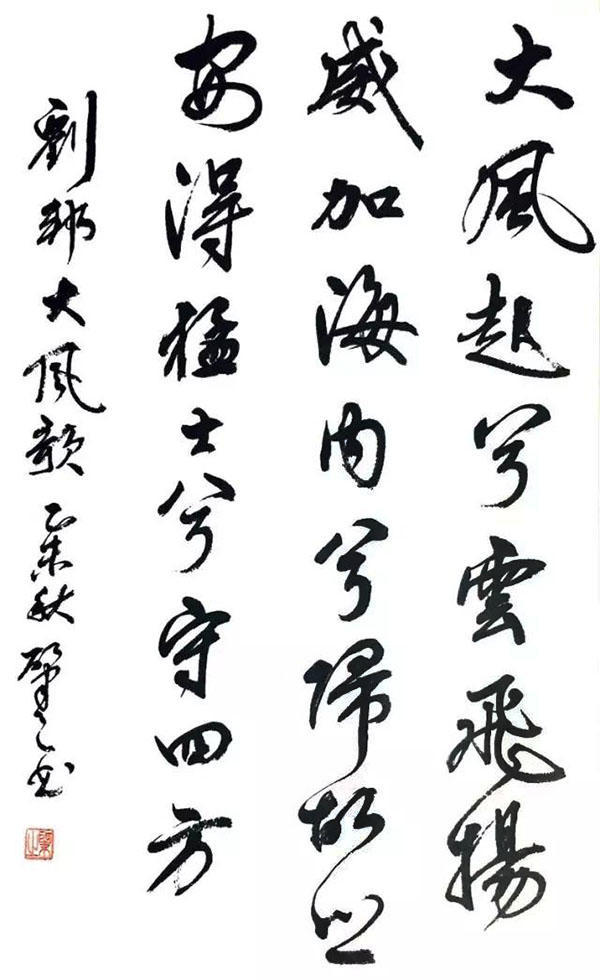 大風起兮雲飛揚
威加海内兮歸故鄉
安得猛士兮守四方
劉邦大風歌 乙未秋 肇之书